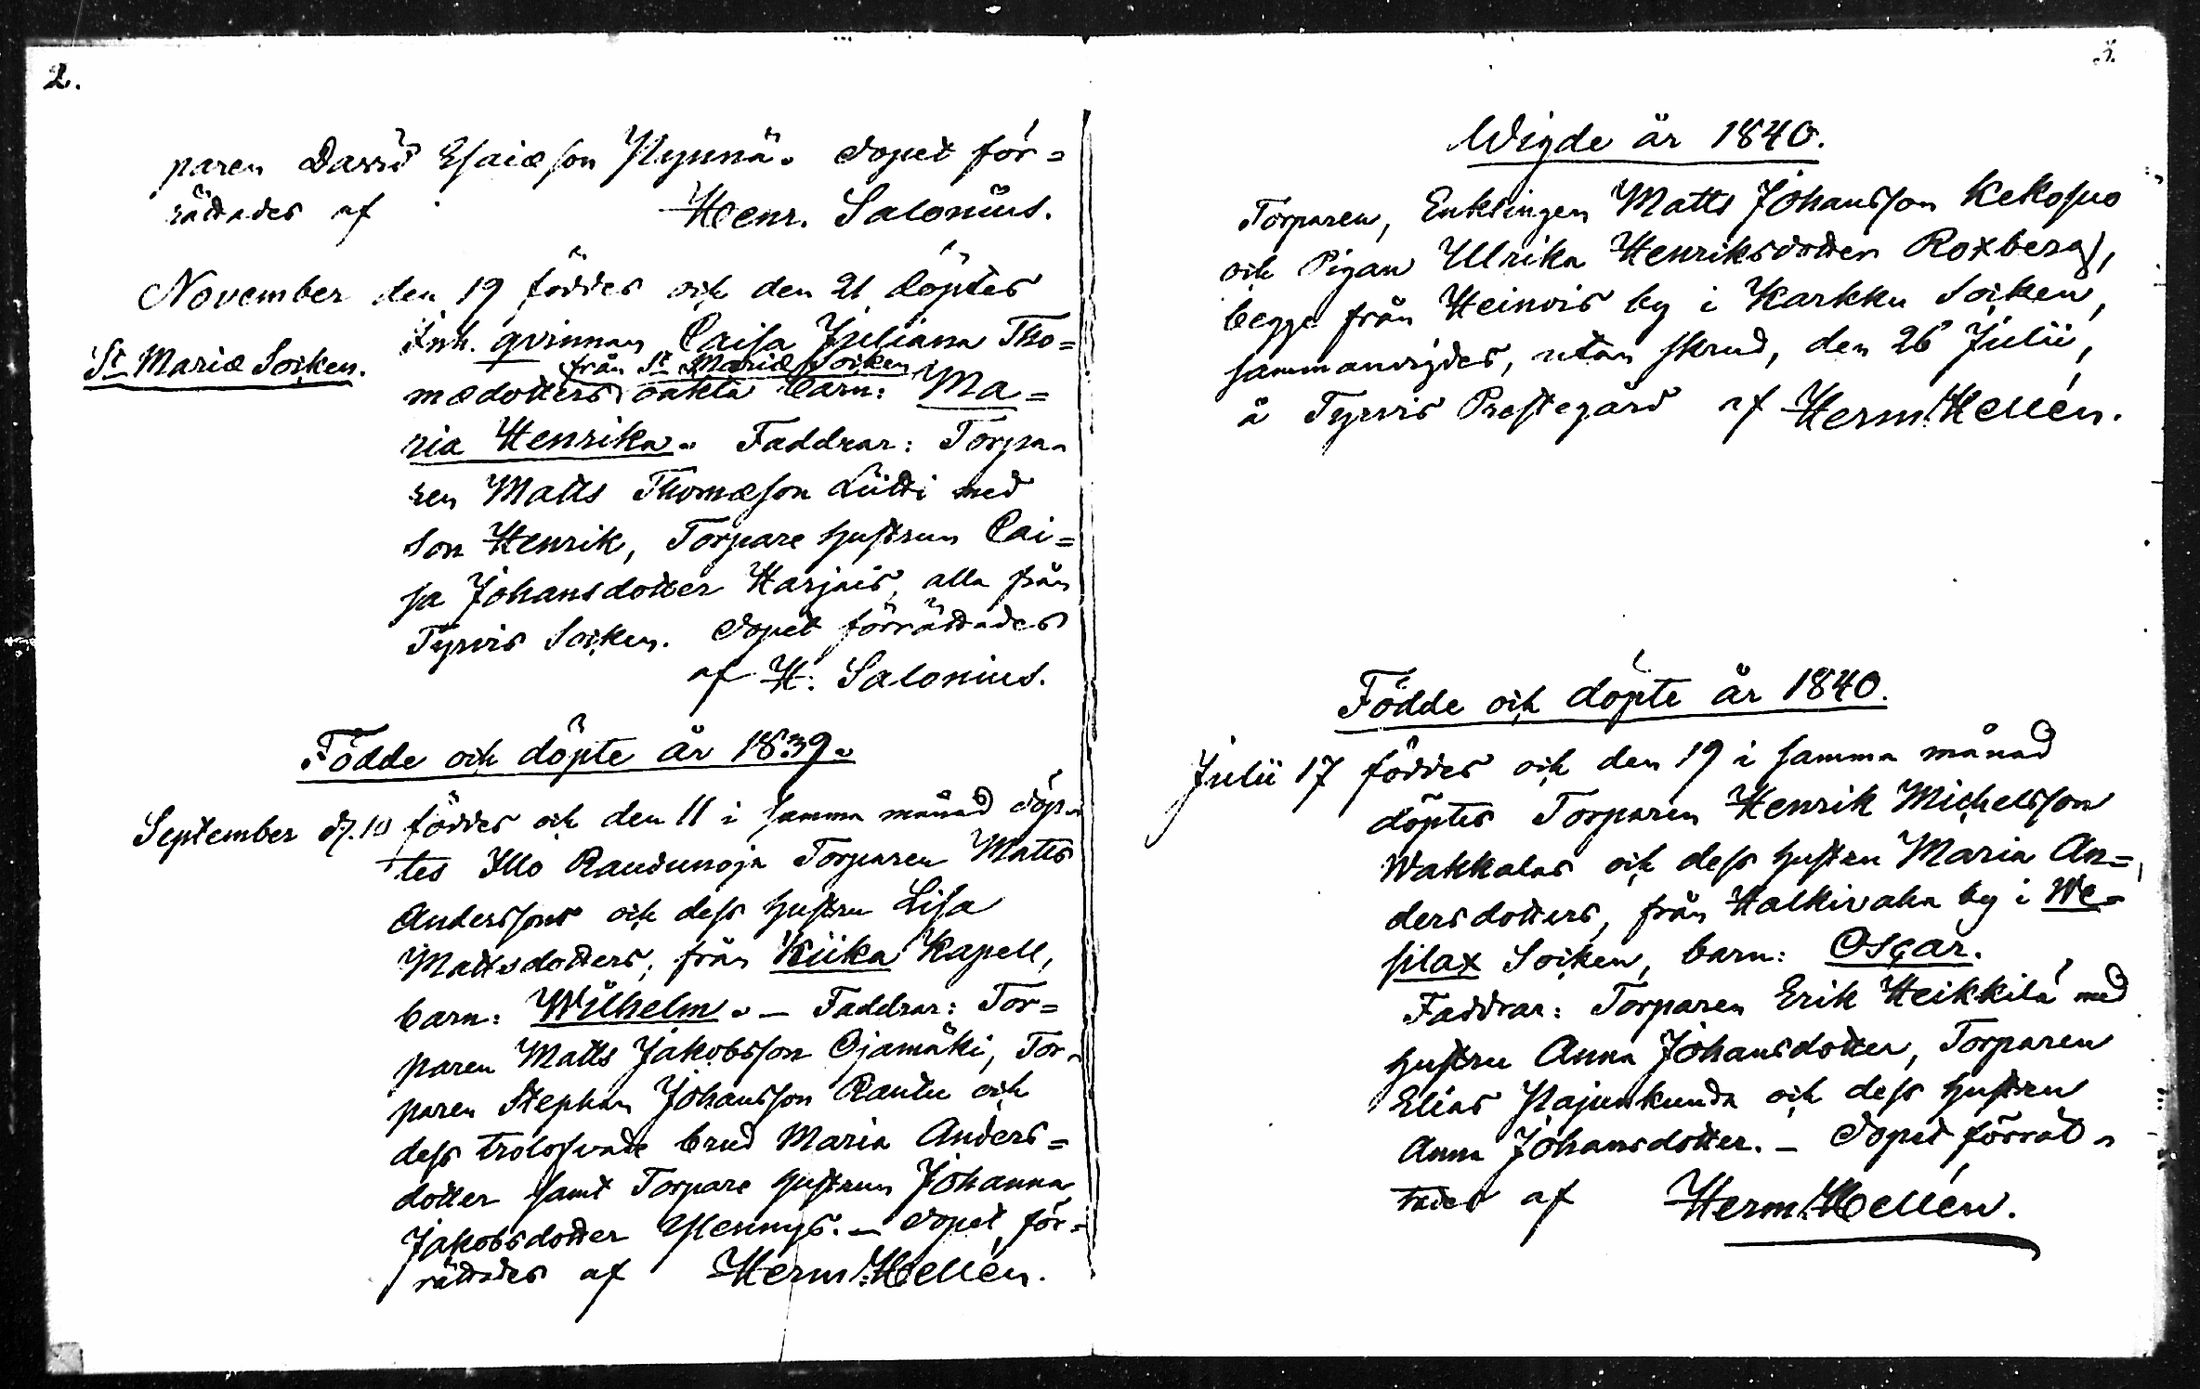 2.
paren David Esaiæson Nynnä. Dopet för=
rättades af Henr. Salonius.
November den 19 föddes och den 21 döptes
Inh. qvinnan Caisa Juliana Tho=
St Mariæ Socken.
från St Mariæ Socken
mædotters oäkta barn: Ma=
ria Henrika. Faddrar: Torpa=
ren Matts Thomæson Liitti med
son Henrik, Torpare hustrun Cai=
sa Johansdotter Harjais, alla från
Tyrvis Socken. Dopet förrättades
af H: Salonius.
Födde och döpte år 1839.
September d. 10 föddes och den 11 i samma månad döp=
tes Illo Raudunoja Torparen Matts
Anderssons och dess hustru Lisa
Mattsdotters, från Kiika Kapell,
barn: Wilhelm. – Faddrar: Tor=
paren Matts Jakobsson Ojamäki, Tor=
paren Stephan Johansson Rautu och
dess trolofvade brud Maria Anders=
dotter samt Torpare hustrun Johanna
Jakobsdotter. – Dopet för=
rättades af Herm: Hellén.
3.
Wigde år 1840.
Torparen, Enklingen Matts Johansson Kekofuo
och Pigan Ulrika Henriksdotter Roxberg,
begge från Heinois by i Karkku Socken,
sammanvigdes, utan skrud, den 26 Julii,
å Tyrvis Prestegård af Herm: Hellén.
Födde och döpte år 1840.
Julii 17 föddes och den 19 i samma månad
döptes Torparen Henrik Michelsson
Wakkalas och dess hustru Maria An=
dersdotters, från Halkivaha by i We=
silax Socken, barn: Oscar.
Faddrar: Torparen Erik Heikkilä med
hustru Anna Johansdotter, Torparen
Elias Pajunkunda och dess hustru
Anna Johansdotter. – Dopet förrät=
tades af Herm: Hellén.